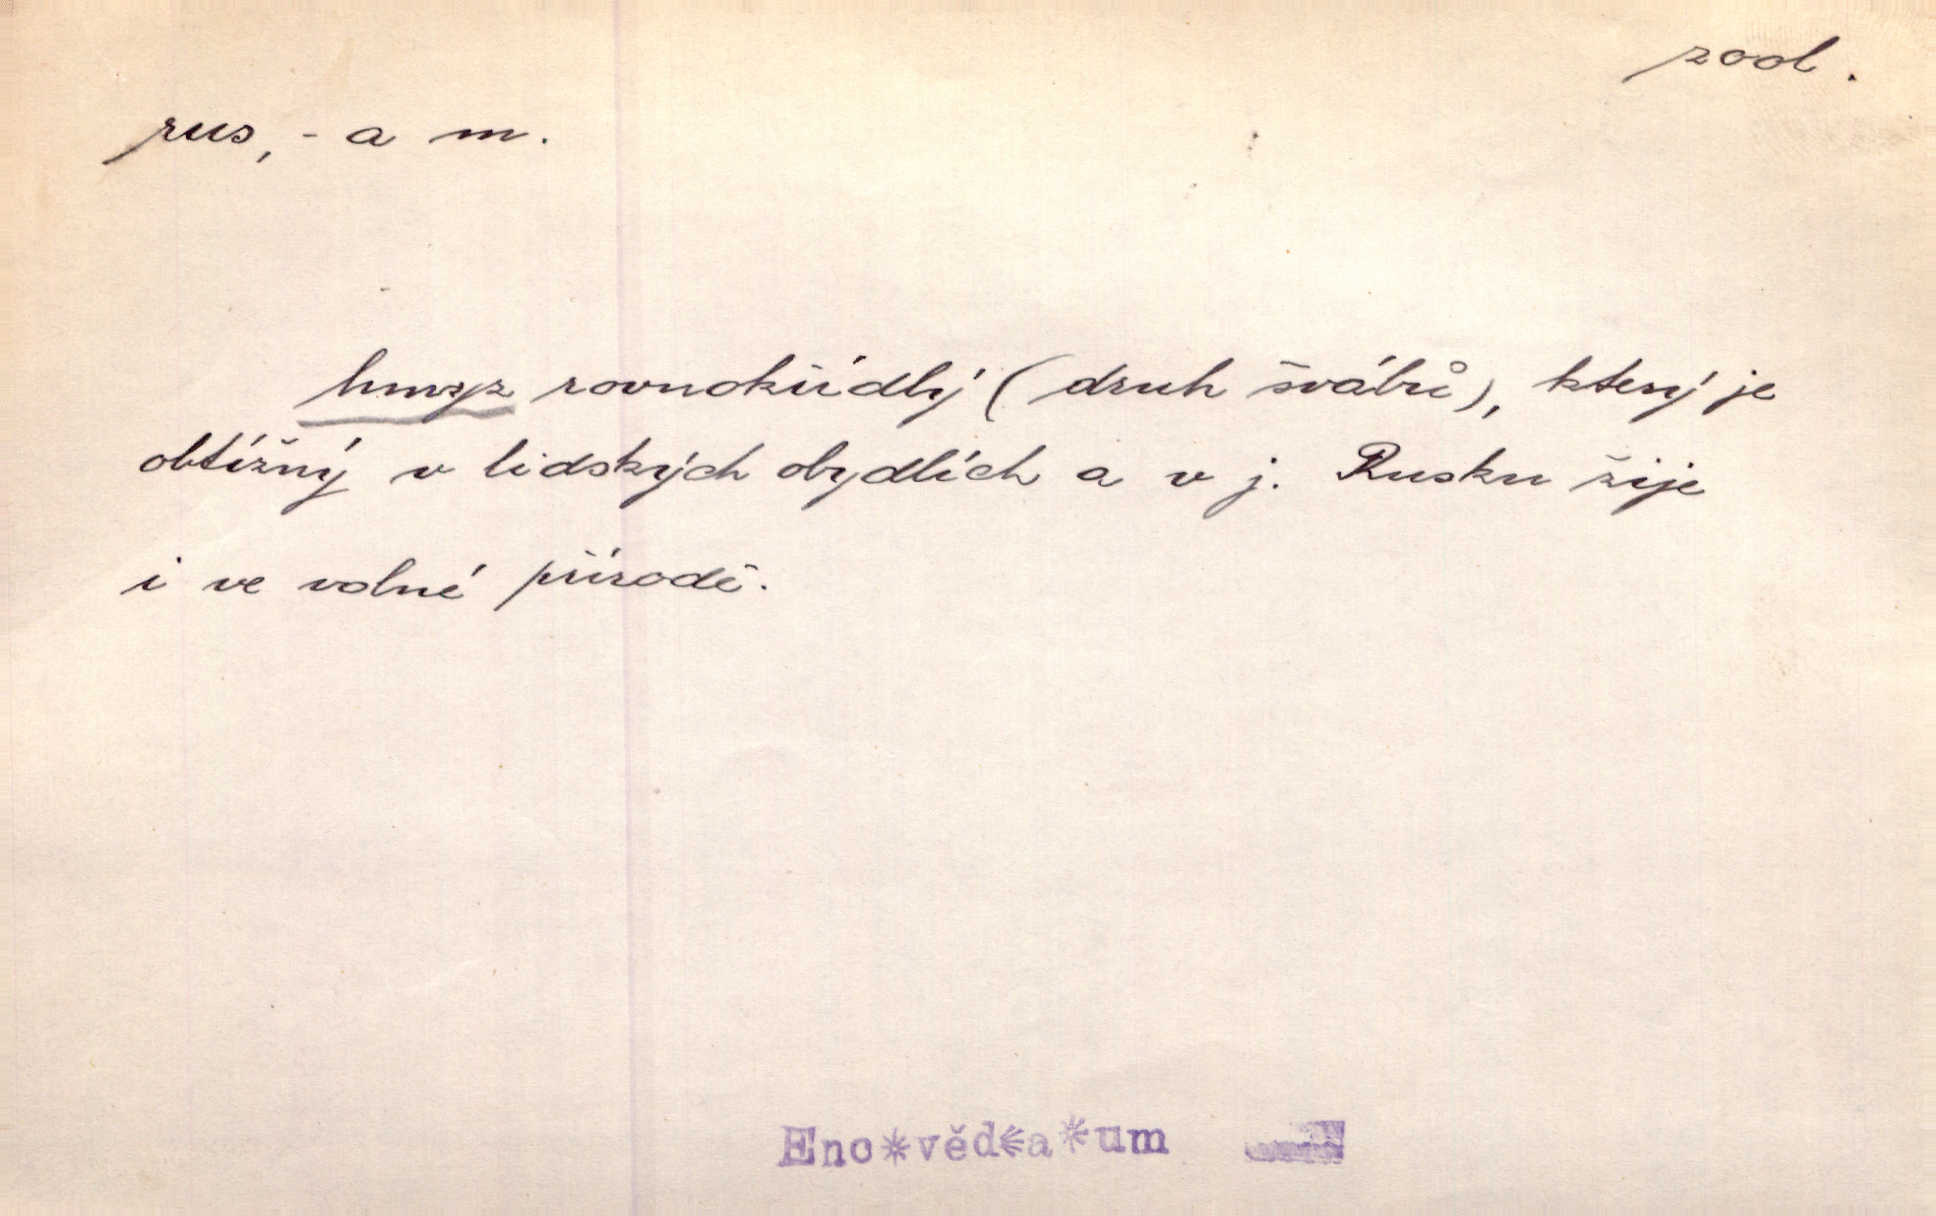 zool.
rus, -a m.
hmyz rovnokřídlý (druh švábů), který je
obtížný v lidských obydlích a v j. Rusku žije
i ve volné přírodě.
Enc*věd*a*um